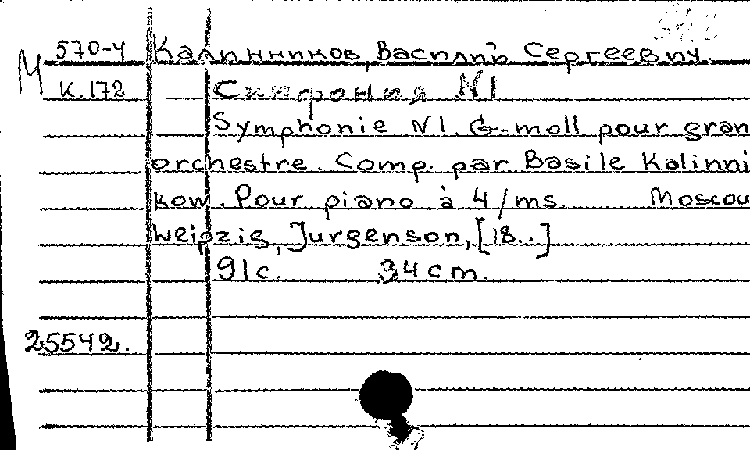 570-4 Калинников, Василий Сергеевич.
М К.172 Симфония N1
Symphonie N1. G-moll pour gran
orchestre. Comp. par Basile Kalinni
kow. Pour piano à 4/ms. Moscou
Leipzig, Jurgenson, [18..]
91c. 34cm.
25542.